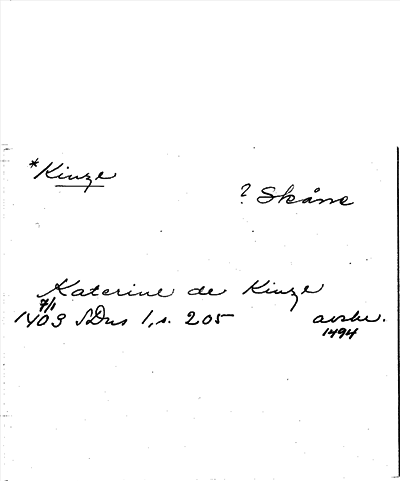 *Kinze
? Skåne
Katerine de Kinze
7/1
1403 SDns 1, s. 205 avskr.
1494